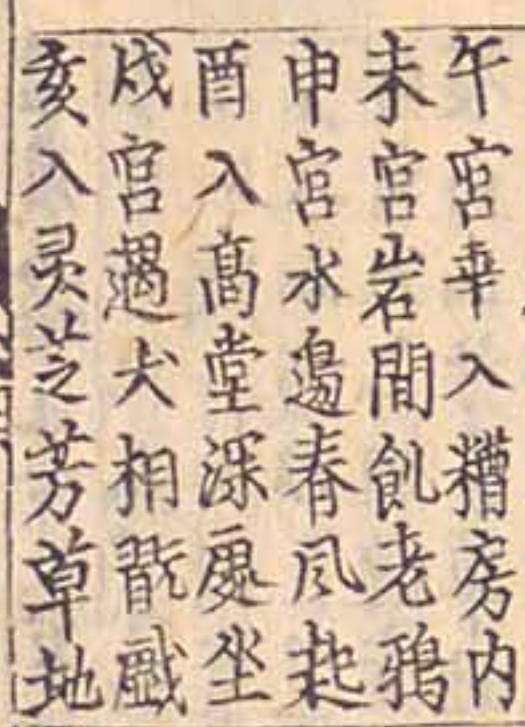 午宮幸入糟房内
未宮岩間飢老鴉
申宮水邊春风起
酉入髙堂深處坐
戌宮遇犬相戲
亥入灵芝芳草地